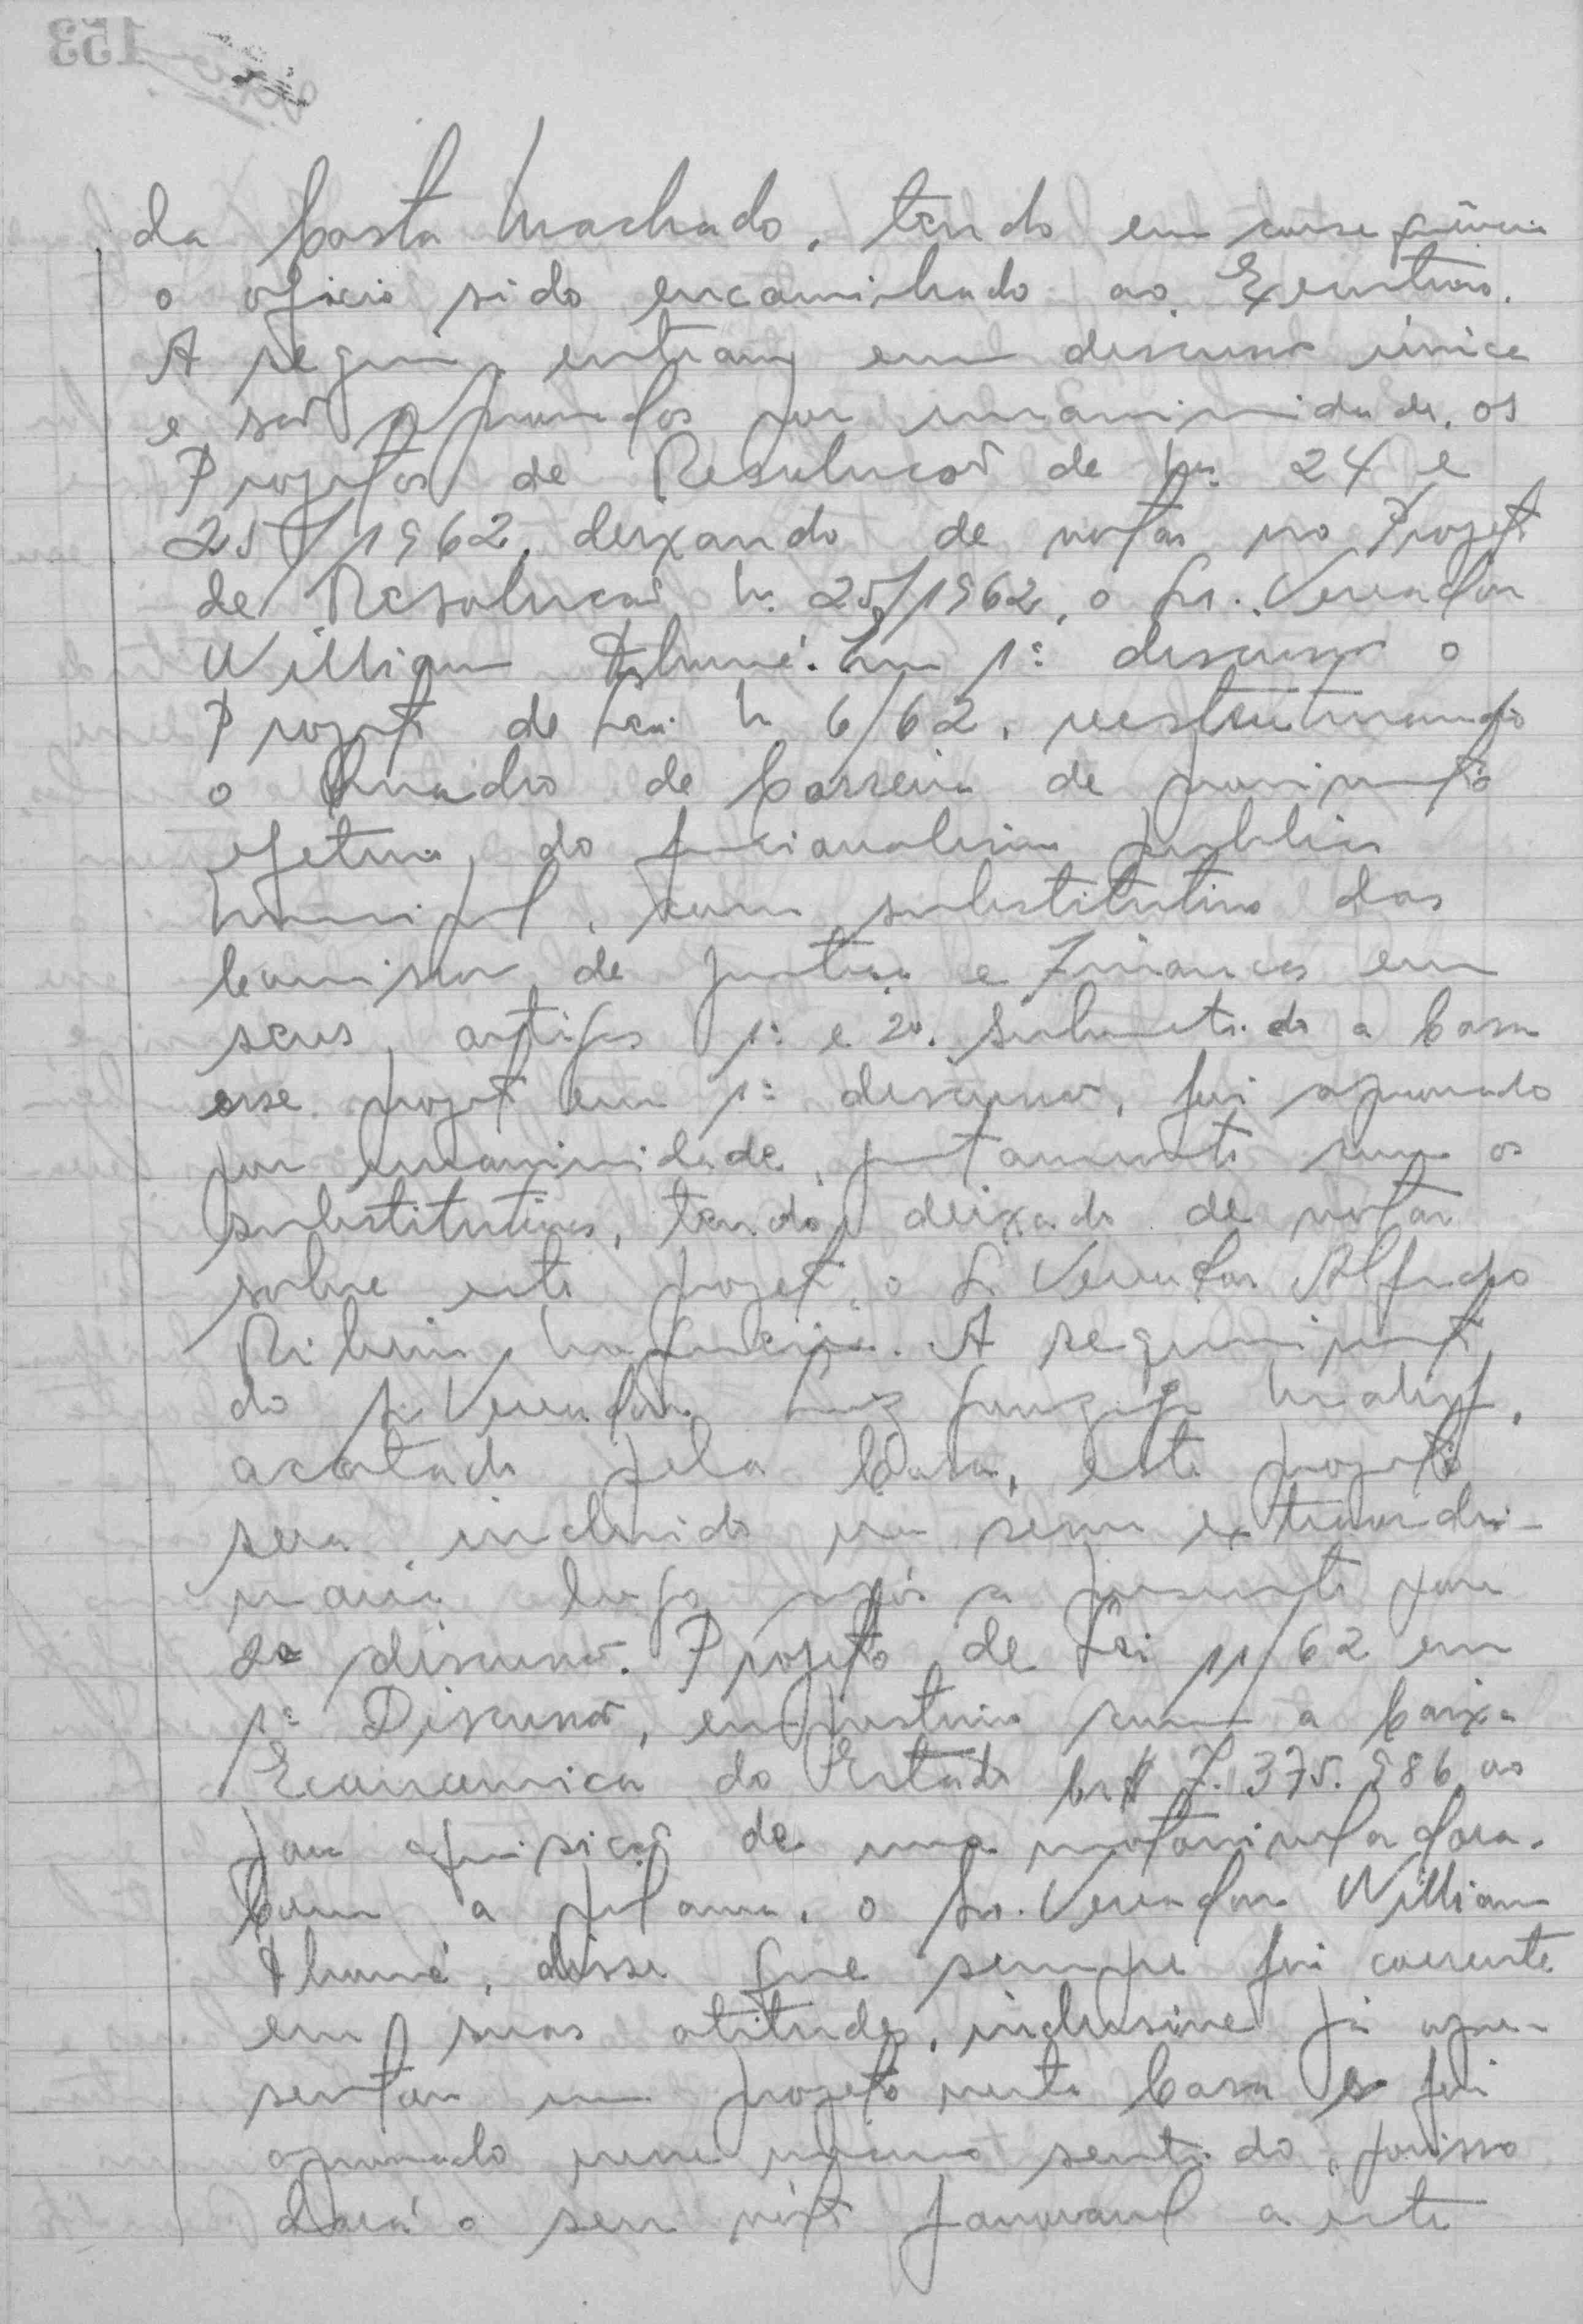 da Costa Machado, tendo em consequência
o oficio sido encaminhado ao Executivo.
A seguir, entram em discussão única
e são aprovados por unanimidade, os
Projetos de Resolução de nrs. 24 e
25/1962, deixando de votar no Projeto
de Resolução n. 25/1962, o Sr. Vereador
William Thomé. Em 1ª discussão o
Projeto de Lei n 6/62, reestruturando
o Quadro de Carreira de provimento
efetivo do funcionalismo publico
municipal, com substitutivo das
Comissão de Justiça e Finanças em
seus artigos 1º e 2º. Submetido a Casa
esse projeto em 1ª discussão, foi aprovado
por unanimidade, juntamente com os
substitutivos, tendo deixado de votar
sobre este projeto, o Sr Vereador Alfredo
Ribeiro. A requerimento
do Sr Vereador Luiz Gonzaga
acatado pela Casa, este projeto
sera incluido na sessão extraordi-
naria logo após a presente para
2a discussão. Projeto de Lei 11/62 em
1ª Discussão, emprestimo com a Caixa
Economica do Estado Cr$ 7.375.986,00
para aquisição de uma motoniveladora.
Com a palavra, o Sr. Vereador William
Thomé, disse que sempre foi coerente
em suas atitudes, inclusive já apre-
sentou um projeto nesta Casa e foi
aprovado nesse mesmo sentido, porisso
dará o seu voto favoravel a este